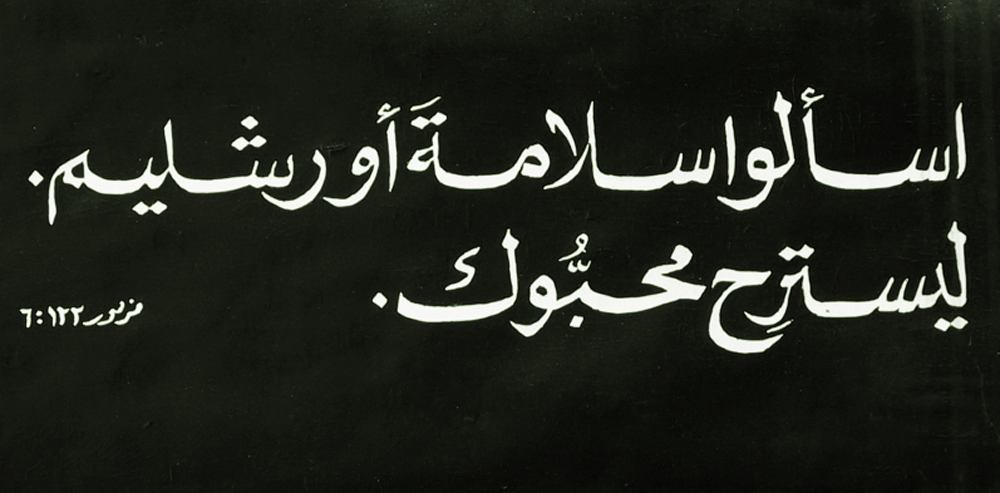 اسألوا سلامةَ أورشليم.
ليسترِح محبُّوك.
مزمور ١٢٢:٦